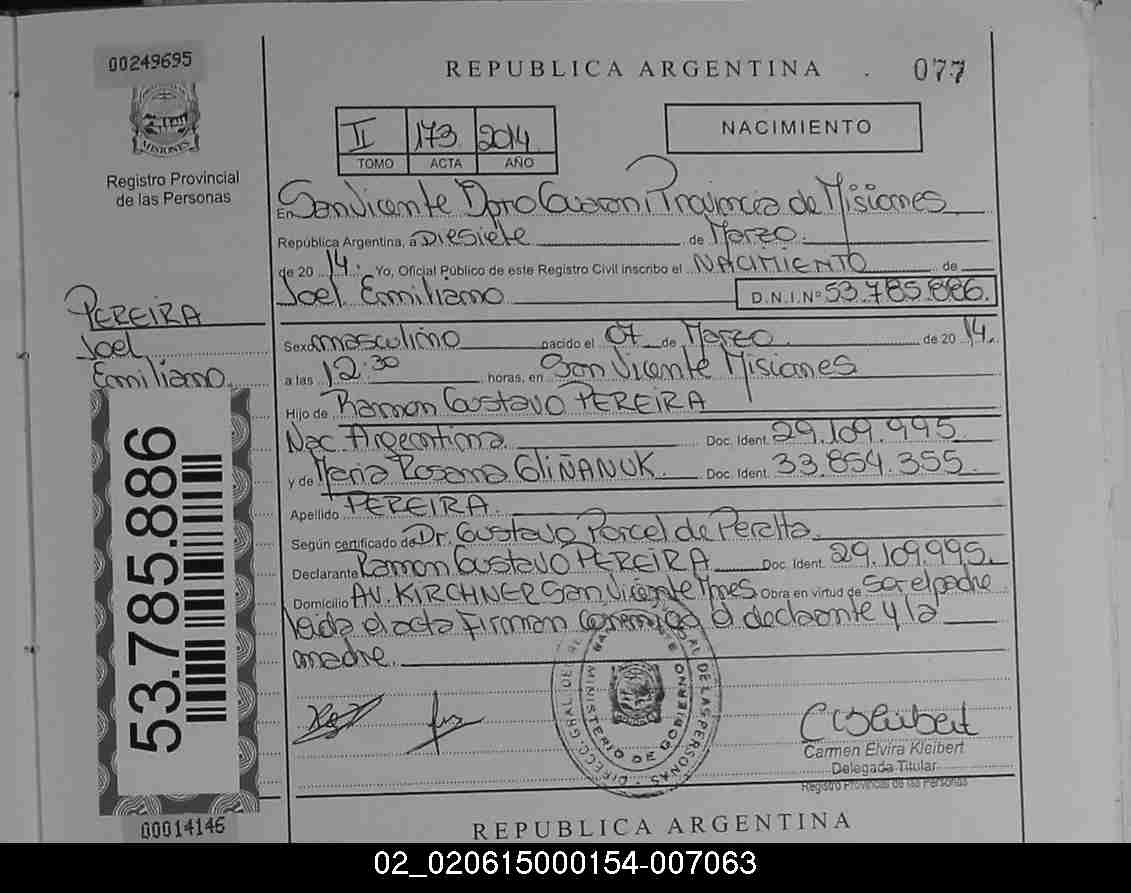 00249695
MISIONES
Registro Provincial
de las Personas
PEREIRA
Joel
Emiliano
53.785.886
00014146
REPUBLICA ARGENTINA
077
II 173 2014
TOMO ACTA AÑO
NACIMIENTO
En San Vicente Dpto Guarani Provincia de Misiones
República Argentina, a Diesiete de Marzo
de 20 14. Yo, Oficial Público de este Registro Civil inscribo el NACIMIENTO de
Joel Emiliano D.N.I.Nº 53.785.886.
Sexo masculino nacido el 07 de Marzo de 20 14.
a las 12:30 horas, en San Vicente Misiones
Hijo de Ramon Gustavo PEREIRA
Nac Argentina Doc. Ident. 29.109.995
y de Maria Rosana OLIÑANUK Doc. Ident. 33.854.355
Apellido PEREIRA
Según certificado de Dr. Gustavo Porcel de Peralta
Declarante Ramon Gustavo PEREIRA Doc. Ident. 29.109.995.
Domicilio AV. KIRCHNER San Vicente Mnes Obra en virtud de Ser el padre
leida el acta Firman conmigo el declarante y la
madre.
DIRECC. GRAL. DE REG. DE LAS PERSONAS
MINISTERIO DE GOBIERNO
Carmen Elvira Kleibert
Delegada Titular
Registro Provincial de las Personas
REPUBLICA ARGENTINA
02_020615000154-007063